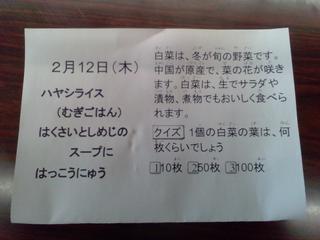 2月12日(木)
ハヤシライス
(むぎごはん)
はくさいとしめじの
スープに
はっこうにゅう
白菜は、冬が旬の野菜です。
中国が原産で、菜の花が咲き
ます。白菜は、生でサラダや
漬物、煮物でもおいしく食べら
れます。
クイズ 1個の白菜の葉は、何
枚くらいでしょう
1 10枚 2 50枚 3 100枚